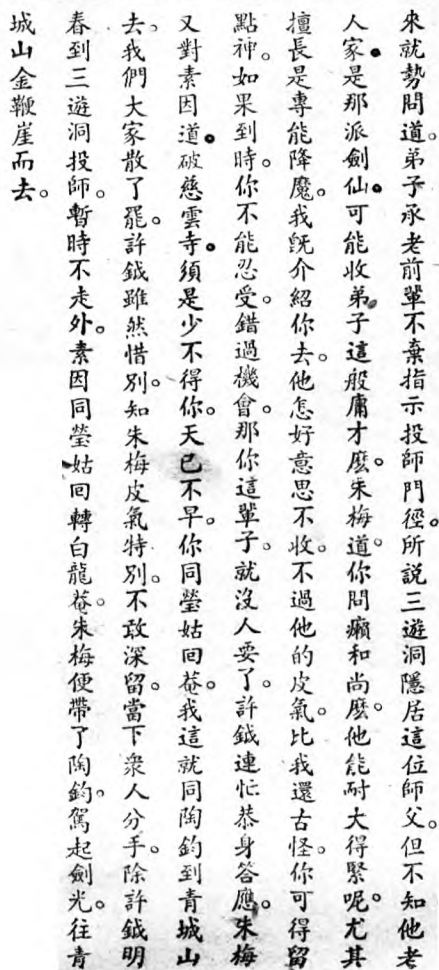 來就勢問道。弟子承老前輩不棄指示投師門徑。所說三遊洞隱居這位師父。但不知他老
人家。是那派劍仙。可能收弟子這般庸才麽。朱梅道。你問癩和尚麽。他能耐大得緊呢。尤其
擅長是專能降魔。我旣介紹你去。他怎好意思不收。不過他的皮氣。比我還古怪。你可得留
點神。如果到時。你不能忍受。錯過機會。那你這輩子。就沒人要了。許鉞連忙恭身答應。朱梅
又對素因道。破慈雲寺。須是少不得你。天已不早。你同瑩姑回菴。我這就同陶鈞到青城山
去。我們大家散了罷。許鉞雖然惜別。知朱梅皮氣特別。不敢深留。當下衆人分手。除許鉞明
春到三遊洞投師。暫時不走外。素因同瑩姑回轉白龍菴。朱梅便帶了陶鈞。駕起劍光。往青
城山金鞭崖而去。